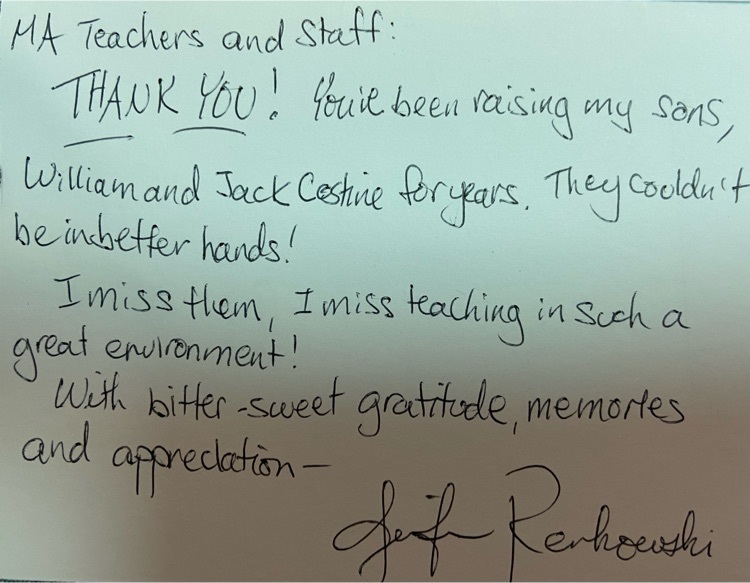 MA Teachers and Staff:
THANK YOU! You've been raising my sons,
William and Jack for years. They couldn't
be in better hands!
I miss them, I miss teaching in such a
great environment!
With bitter-sweet gratitude, memories
and appreciation—